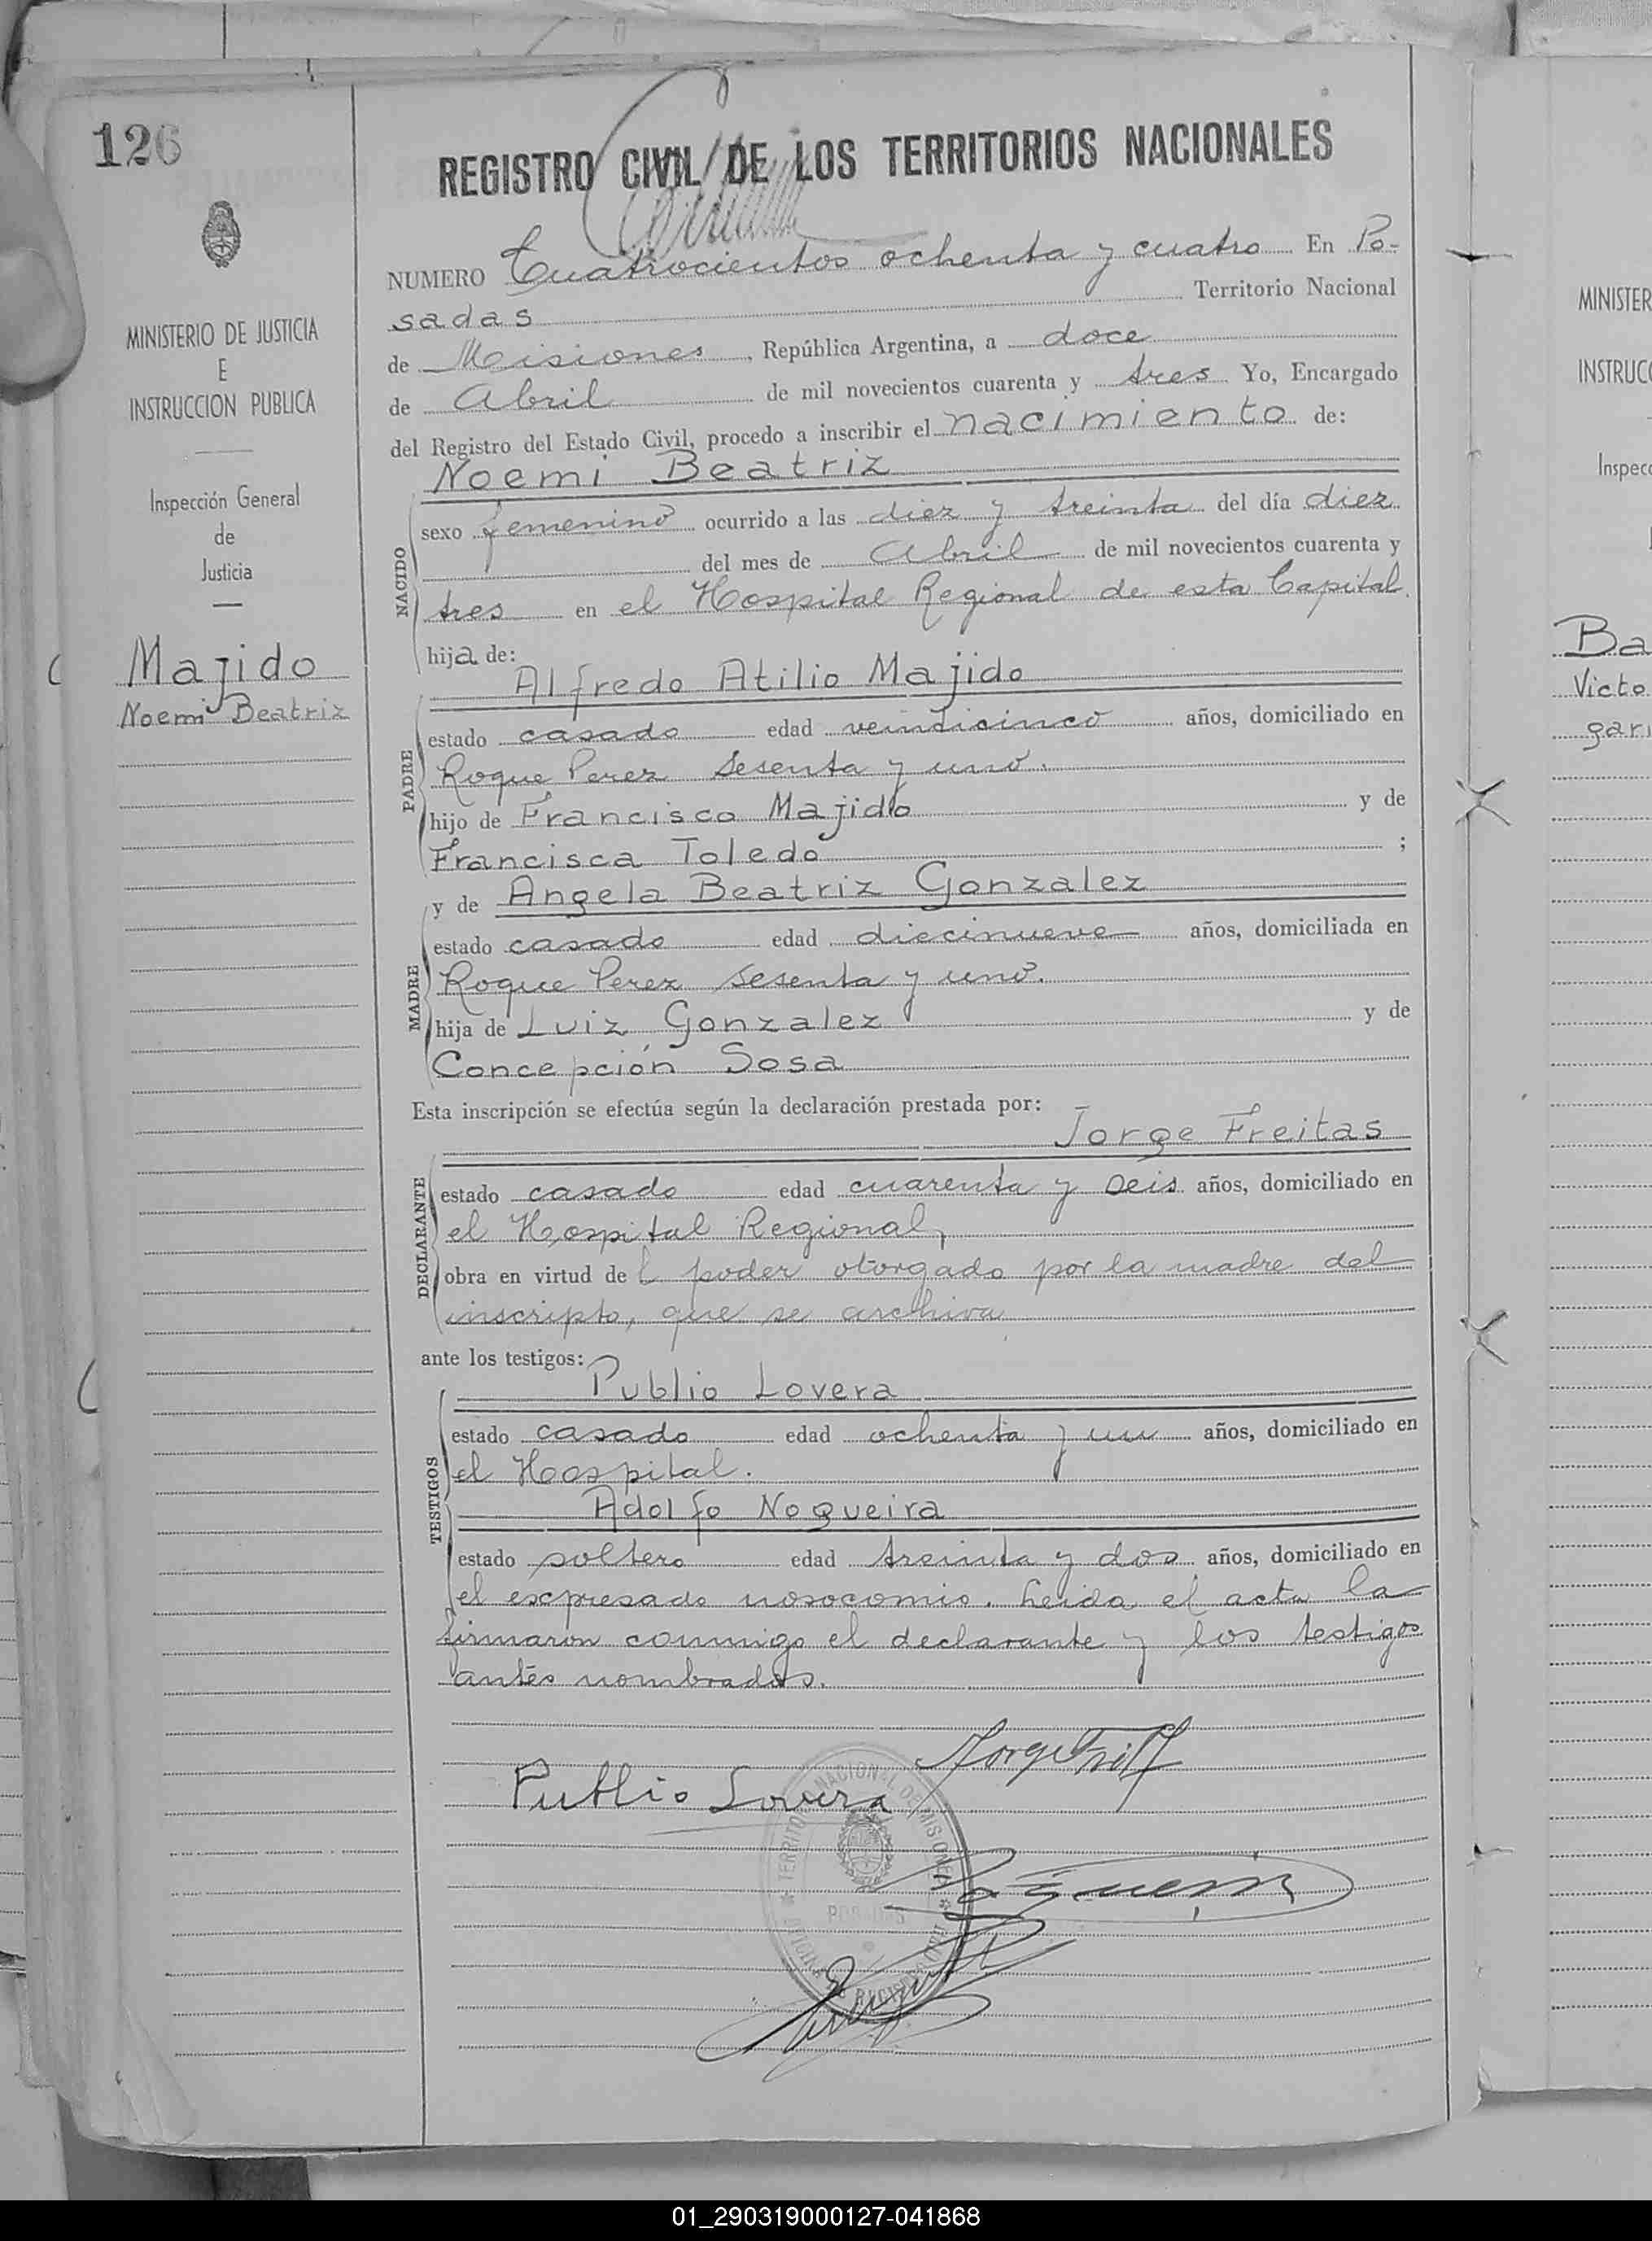 126
REGISTRO CIVIL DE LOS TERRITORIOS NACIONALES
NUMERO Cuatrocientos ochenta y cuatro En Po-
sadas Territorio Nacional
de Misiones, República Argentina, a doce
de Abril de mil novecientos cuarenta y tres Yo, Encargado
del Registro del Estado Civil, procedo a inscribir el nacimiento de:
Noemi Beatriz
NACIDO
sexo femenino ocurrido a las diez y treinta del día diez
del mes de Abril de mil novecientos cuarenta y
tres en el Hospital Regional de esta Capital.
hija de:
Alfredo Atilio Majido
PADRE
estado casado edad veinticinco años, domiciliado en
Roque Perez sesenta y uno.
hijo de Francisco Majido y de
Francisca Toledo ;
y de Angela Beatriz Gonzalez
MADRE
estado casado edad diecinueve años, domiciliada en
Roque Perez sesenta y uno.
hija de Luiz Gonzalez y de
Concepción Sosa
Esta inscripción se efectúa según la declaración prestada por:
Jorge Freitas
DECLARANTE
estado casado edad cuarenta y seis años, domiciliado en
el Hospital Regional,
obra en virtud del poder otorgado por la madre del
inscripto, que se archiva
ante los testigos:
Publio Lovera
TESTIGOS
estado casado edad ochenta y un años, domiciliado en
el Hospital.
Adolfo Nogueira
estado soltero edad treinta y dos años, domiciliado en
el expresado nosocomio. Leida el acta la
firmaron conmigo el declarante y los testigos
antes nombrados.
Publio Lovera
TERRITORIO NACIONAL DE MISIONES
POSADAS
MINISTERIO DE JUSTICIA
E
INSTRUCCION PUBLICA
Inspección General
de
Justicia
Majido
Noemi Beatriz
MINISTER
INSTRUCC
Inspecc
Ba
Victo
gari
01_290319000127-041868